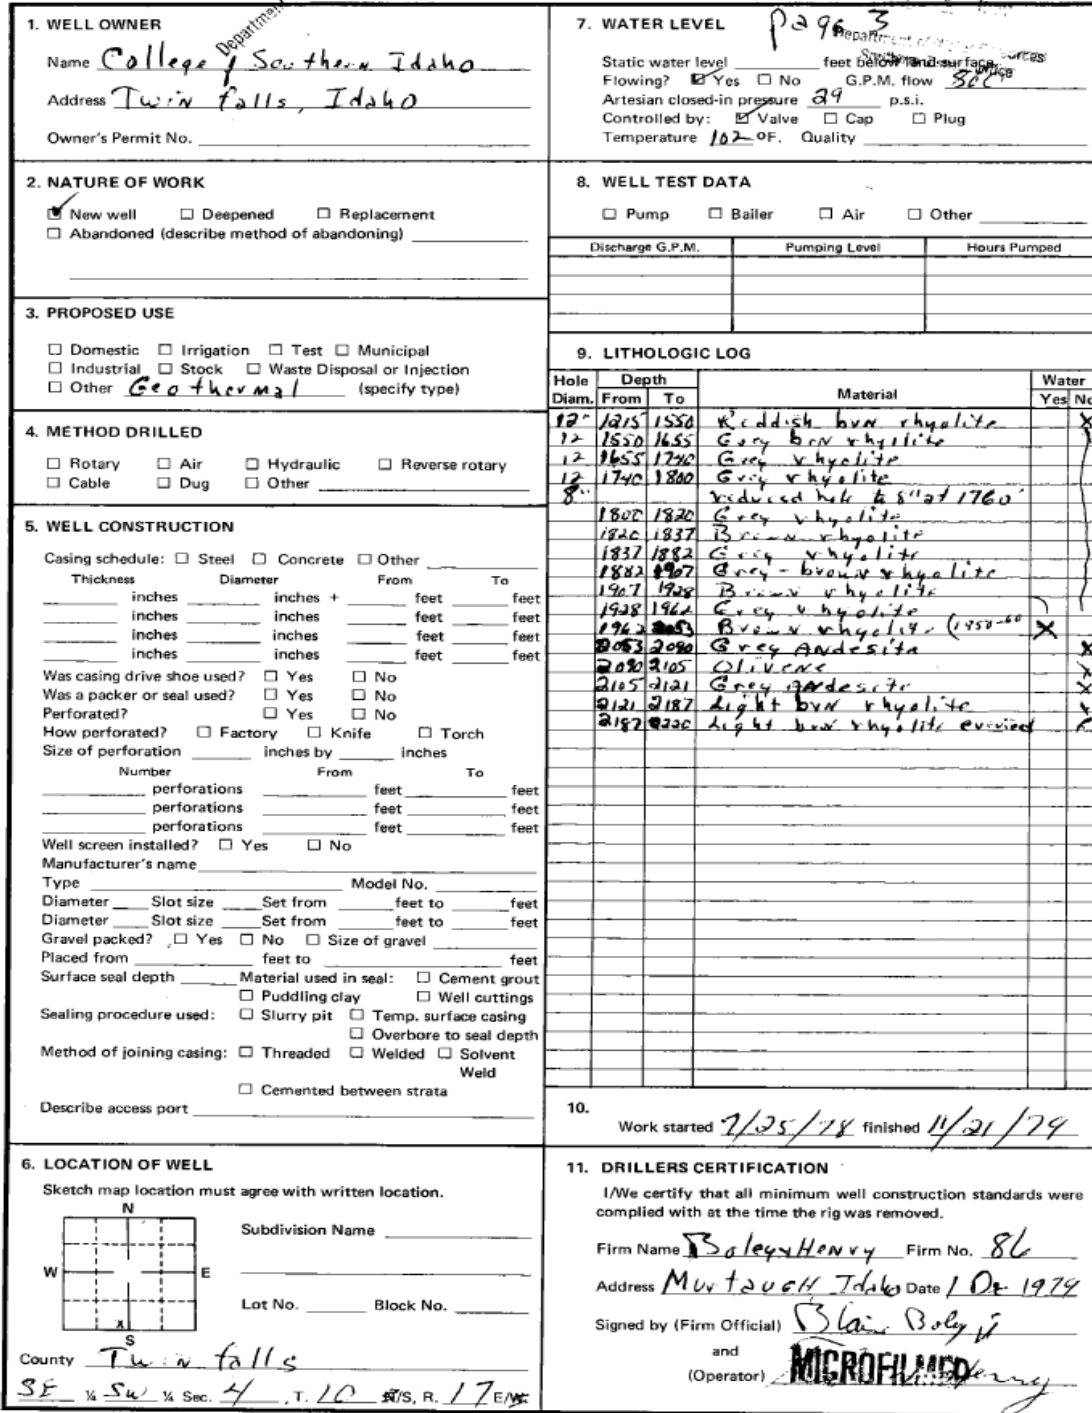 1. WELL OWNER
Department
Name College of Southern Idaho
Address Twin falls, Idaho
Owner's Permit No.
2. NATURE OF WORK
☑ New well ☐ Deepened ☐ Replacement
☐ Abandoned (describe method of abandoning)
3. PROPOSED USE
☐ Domestic ☐ Irrigation ☐ Test ☐ Municipal
☐ Industrial ☐ Stock ☐ Waste Disposal or Injection
☐ Other Geothermal (specify type)
4. METHOD DRILLED
☐ Rotary ☐ Air ☐ Hydraulic ☐ Reverse rotary
☐ Cable ☐ Dug ☐ Other
5. WELL CONSTRUCTION
Casing schedule: ☐ Steel ☐ Concrete ☐ Other
Thickness Diameter From To
inches inches + feet feet
inches inches feet feet
inches inches feet feet
inches inches feet feet
Was casing drive shoe used? ☐ Yes ☐ No
Was a packer or seal used? ☐ Yes ☐ No
Perforated? ☐ Yes ☐ No
How perforated? ☐ Factory ☐ Knife ☐ Torch
Size of perforation inches by inches
Number From To
perforations feet feet
perforations feet feet
perforations feet feet
Well screen installed? ☐ Yes ☐ No
Manufacturer's name
Type Model No.
Diameter Slot size Set from feet to feet
Diameter Slot size Set from feet to feet
Gravel packed? ☐ Yes ☐ No ☐ Size of gravel
Placed from feet to feet
Surface seal depth Material used in seal: ☐ Cement grout
☐ Puddling clay ☐ Well cuttings
Sealing procedure used: ☐ Slurry pit ☐ Temp. surface casing
☐ Overbore to seal depth
Method of joining casing: ☐ Threaded ☐ Welded ☐ Solvent
Weld
☐ Cemented between strata
Describe access port
6. LOCATION OF WELL
Sketch map location must agree with written location.
N
Subdivision Name
W E
Lot No. Block No.
X
S
County Twin falls
SE ¼ SW ¼ Sec. 4, T. 10 N/S, R. 17 E/W
7. WATER LEVEL
page 3
Department of
Static water level feet below land surface
Flowing? ☑ Yes ☐ No G.P.M. flow
Artesian closed-in pressure 29 p.s.i.
Controlled by: ☑ Valve ☐ Cap ☐ Plug
Temperature 102 °F. Quality
8. WELL TEST DATA
☐ Pump ☐ Bailer ☐ Air ☐ Other
Discharge G.P.M. Pumping Level Hours Pumped
9. LITHOLOGIC LOG
Hole Depth Water
Diam. From To Material Yes No
12" 1215 1550 Reddish brn rhyolite X
12 1550 1655 Grey brn rhyolite
12 1655 1740 Grey rhyolite
12 1740 1800 Grey rhyolite
8" reduced hole to 8" at 1760'
1800 1820 Grey rhyolite
1820 1837 Brown rhyolite
1837 1882 Grey rhyolite
1882 1907 Grey-brown rhyolite
1907 1928 Brown rhyolite
1928 1962 Grey rhyolite
1962 2053 Brown rhyolite (1950-60 X
2053 2090 Grey Andesite X
2090 2105 Olivene X
2105 2121 Grey Andesite X
2121 2187 Light brn rhyolite
2187 2220 Light brn rhyolite
10.
Work started 7/25/78 finished 11/21/79
11. DRILLERS CERTIFICATION
I/We certify that all minimum well construction standards were
complied with at the time the rig was removed.
Firm Name Boley & Henry Firm No. 86
Address Murtaugh Idaho Date 1 De 1979
Signed by (Firm Official) Blair Boley
and
(Operator) MICROFILMED Henry